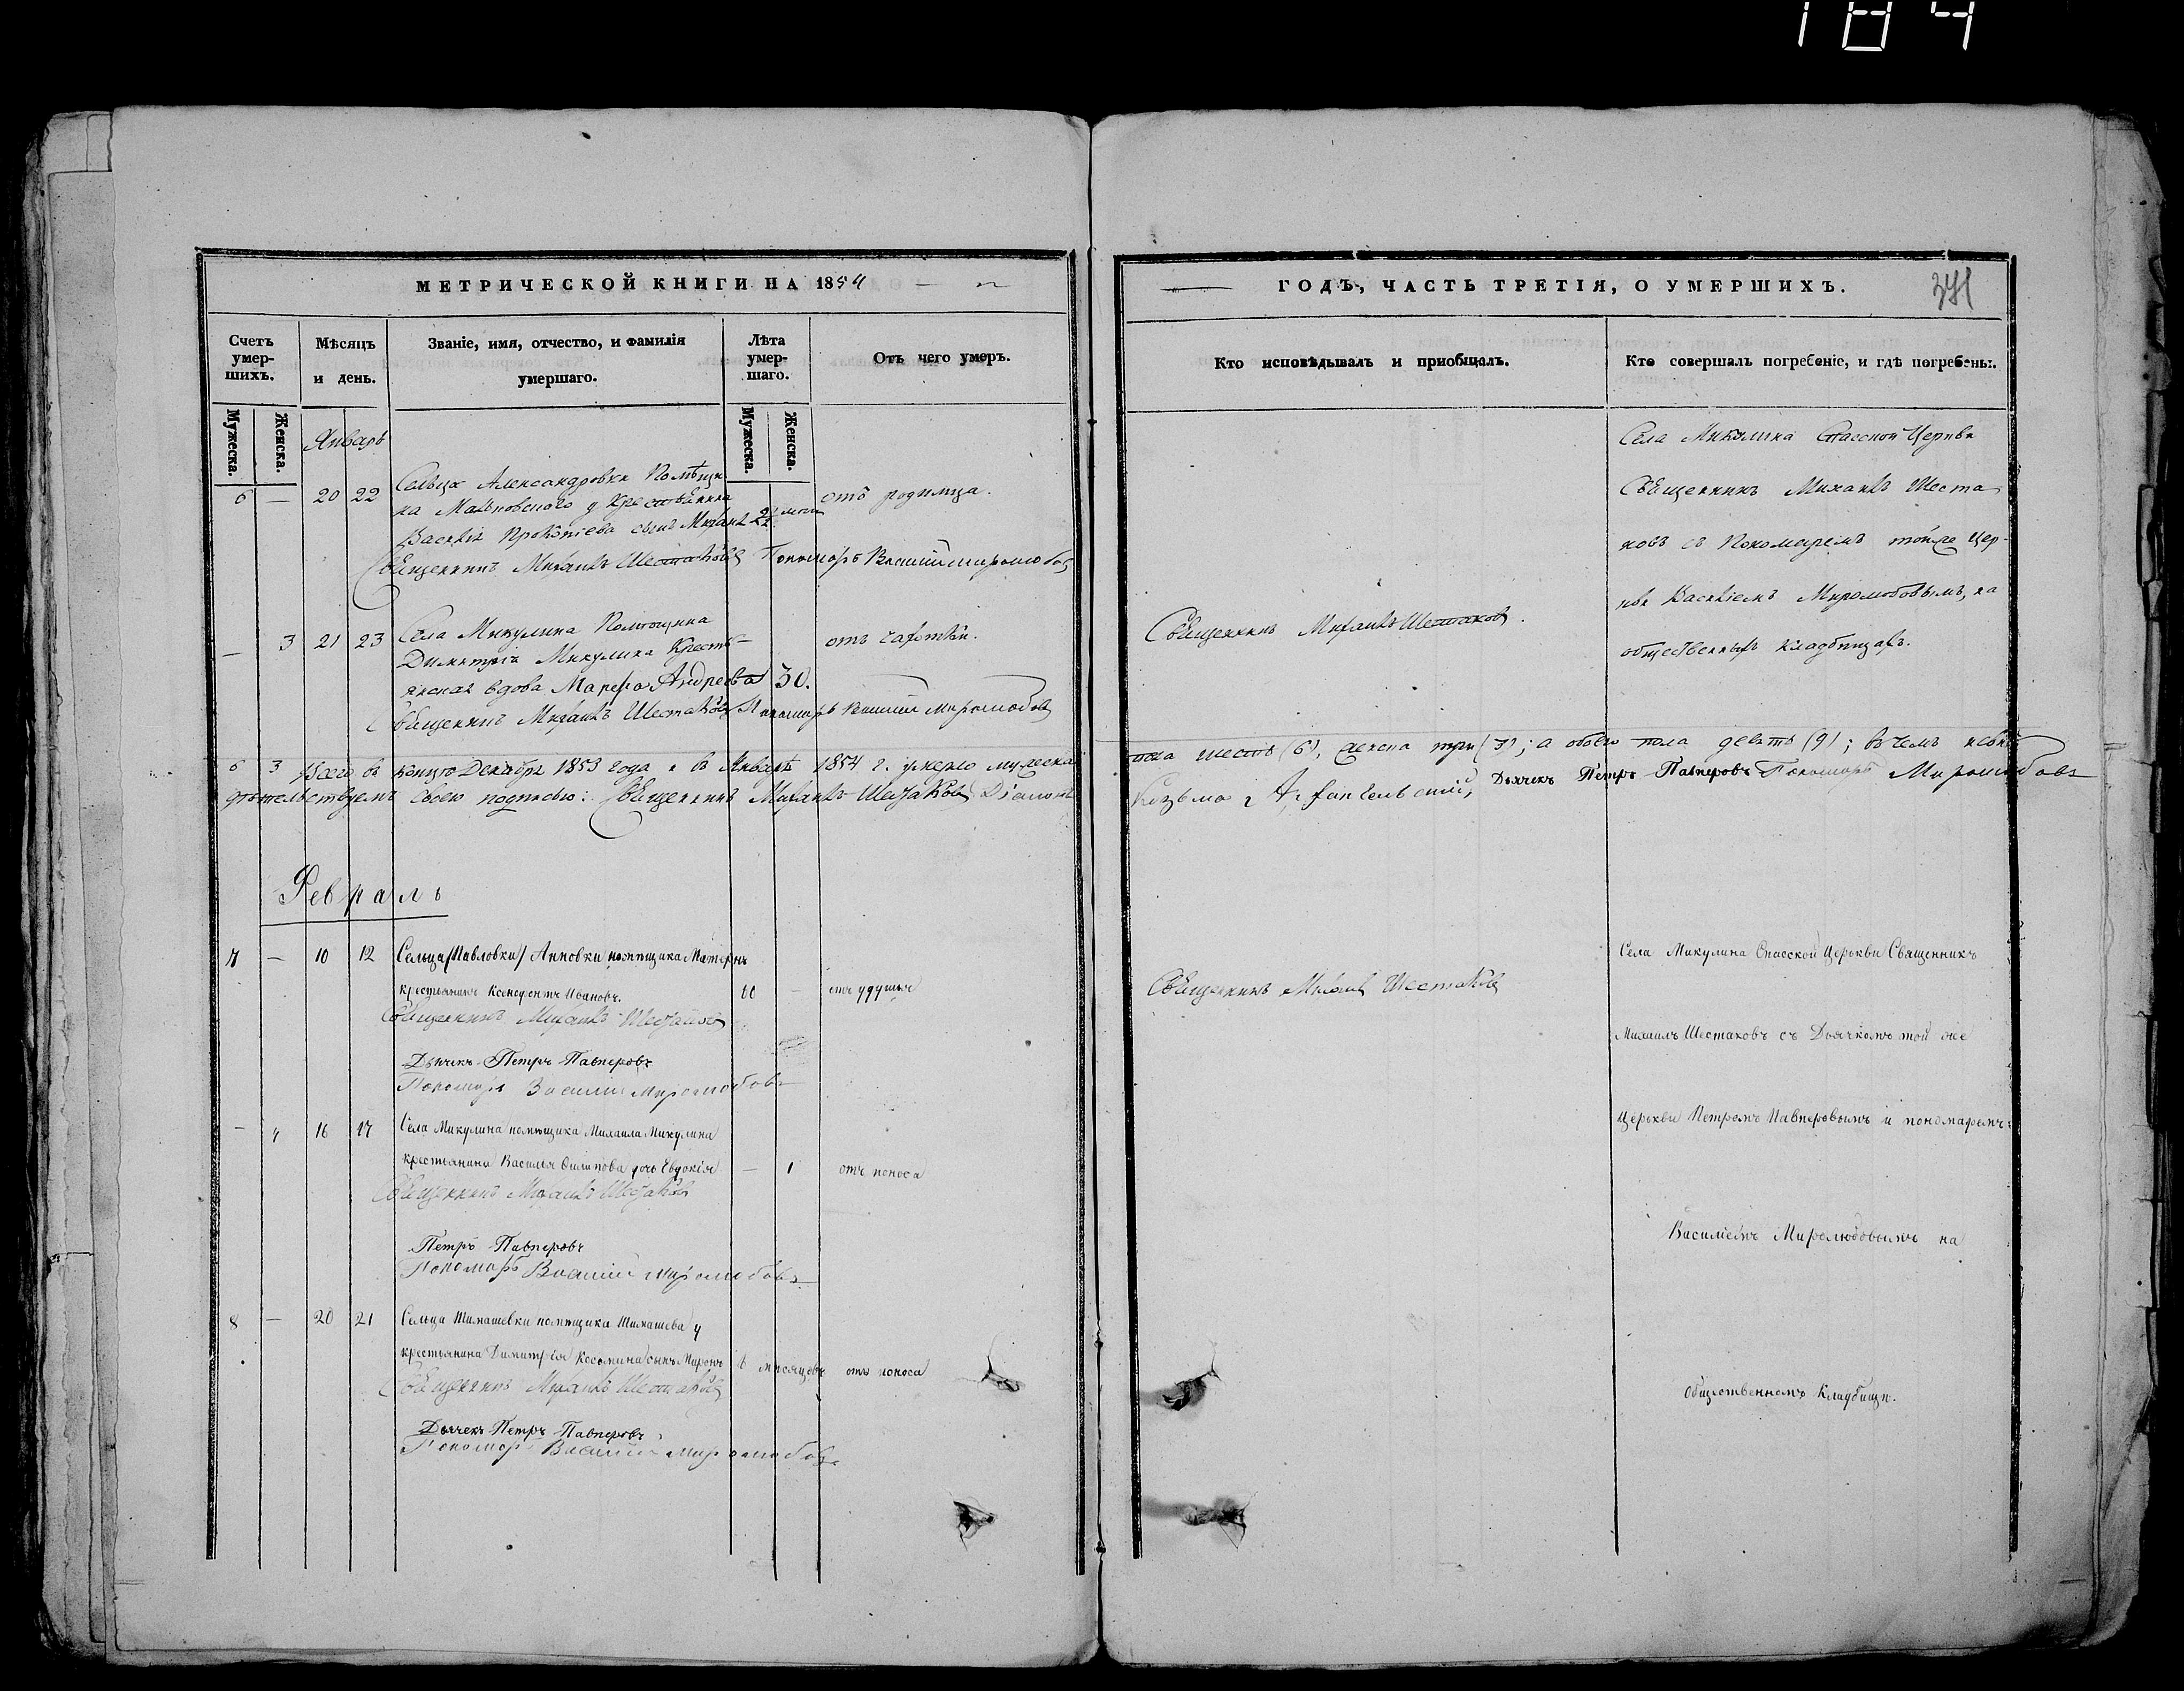 184
МЕТРИЧЕСКОЙ КНИГИ НА 1854
Счетъ умер-шихъ.
Мѣсяцъ и день.
Званіе, имя, отчество, и фамилія умершаго.
Лѣта умер-шаго.
Отъ чего умеръ.
Мужеска.
Женска.
Мужеска.
Женска.
Январь
6 — 20 22 Сельца Александровки Помѣщи
ка Мальновскаго у Крестьянина
отъ родимца.
Василія Прокопіева сынъ
Священникъ Михаилъ Шестаковъ Пономарь Василий Миролюбовъ
— 3 21 23 Села Микулина Помощика
Димитрія Микулина Кресть-
отъ
янская вдова Марѳа Андреева 30.
Священникъ Михаилъ Шестаковъ Пономарь Василий Миролюбовъ
6 3 Всего въ концѣ Декабря 1853 года и въ Январѣ 1854 г. умерло мужеска
дѣтельствуемъ своею подписью: Священникъ Михаилъ Шестаковъ Діаконъ
Февраль
7 — 10 12 Сельца /Павловки/ Анновки помѣщика Матернъ
крестьянинъ Ксенофонтъ Ивановъ. — отъ удушья
Священникъ Михаилъ Шестаковъ
Дьячекъ Петръ Павперовъ
Пономарь Василий Миролюбовъ
— 4 16 17 Села Микулина помѣщика Михаила Микулина
крестьянина Василья Филипова дочь Евдокія — 1 отъ поноса
Священникъ Михаилъ Шестаковъ
Петръ Павперовъ
Пономарь Василий Миролюбовъ
8 — 20 21 Сельца Тимашевки помѣщика Тимашева у
крестьянина Димитрія Косьмина сынъ Миронъ мѣсяцевъ отъ поноса
Священникъ Михаилъ Шестаковъ
Дьячекъ Петръ Павперовъ
Пономарь Василий Миролюбовъ
ГОДЪ, ЧАСТЬ ТРЕТІЯ, О УМЕРШИХЪ.
Кто исповѣдывалъ и пріобщалъ.
Кто совершалъ погребеніе, и гдѣ погребены.
Села Микулина Спасской Церкви
Священникъ Михаилъ Шеста
ковъ съ Пономаремъ тойже Цер-
кви Василіемъ Миролюбовымъ, на
Священникъ Михаилъ Шестаковъ.
общественныхъ кладбищахъ.
пола шесть (6), женска три (3); а обоего пола девять (9); въ чемъ
Козьма Архангельский, Дьячекъ Петръ Павперовъ Пономарь Миролюбовъ
Села Микулина Спасской Церькви Священникъ
Священникъ Михаилъ Шестаковъ
Михаилъ Шестаковъ съ Дьячкомъ той же
Церькви Петромъ Павперовымъ и пономаремъ
Василіемъ Миролюбовымъ на
Общественномъ Кладбищѣ.